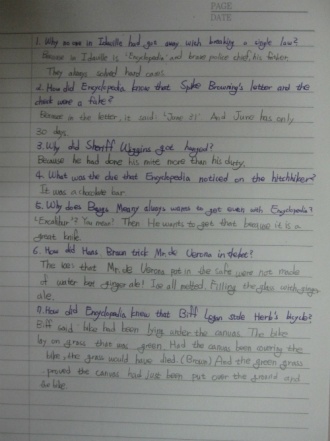 PAGE
DATE
1. Why no one in Idaville had got away with breaking a single law?
Because in Idaville is 'Encyclopedia' and brave police chief, his father.
They always solved hard cases.
2. How did Encyclopedia know that Spike Browning's letter and the
check were a fake?
Because in the letter, it said: 'June 31' And June has only
30 days.
3. Why did Sheriff Wiggins got
Because he had done his more than his duty.
4. What was the clue that Encyclopedia noticed on the hitchhiker?
It was a chocolate bar.
5. Why does Bugs Meany always wants to get even with Encyclopedia?
'Excalibar'? You mean! Then He wants to get that because it is a
great knife.
6. How did Hans Braun trick Mr. de Verona in the bet?
The ices that Mr. de Verona put in the safe were not made
of water but ginger ale! Ice all melted. Filling the glass with ginger
ale.
7. How did Encyclopedia know that Biff Logan stole Herb's bicycle?
Biff said bike had been lying under the canvas. The bike
lay on grass that was green. Had the canvas been covering the
bike, the grass would have died. (Brown) And the green grass
proved the canvas had just been put over the ground and
the bike.